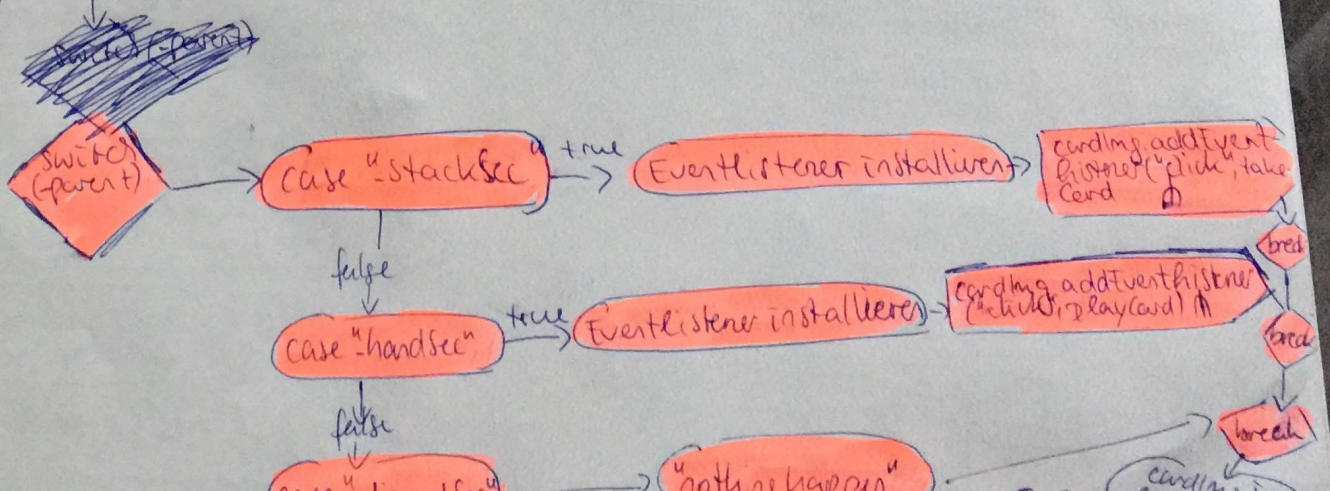 switch(-parent)
switch
(-parent)
case "-stackSec"
true
Eventlistener installieren
cardImg.addEvent
listner("click", take
Card
break
false
case "-handSec"
true
Eventlistener installieren
cardImg.addEventlistener
("click", playCard)
break
false
case
"nothing happen"
break
cardImg